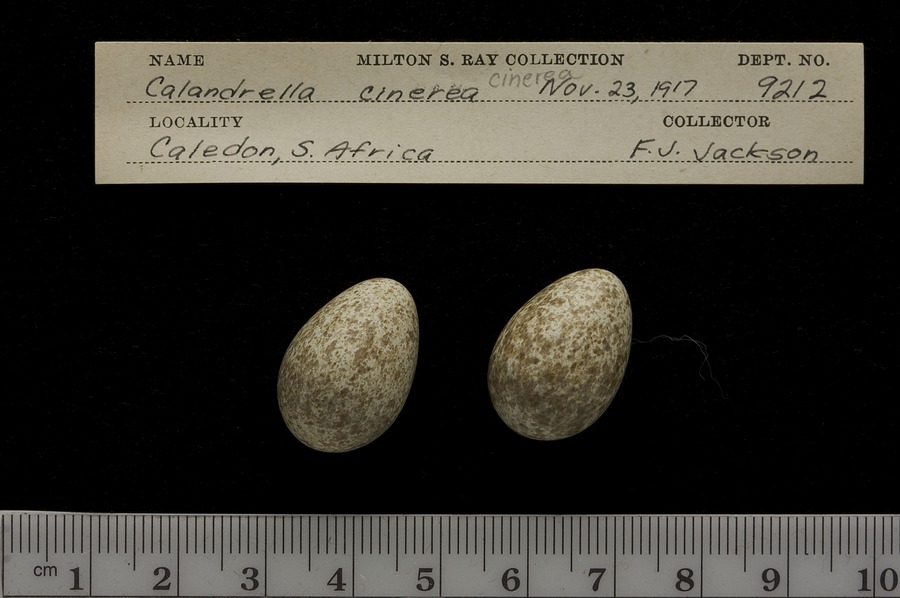 NAME MILTON S. RAY COLLECTION DEPT. NO.
cinerea
Calandrella cinerea Nov. 23, 1917 9212
LOCALITY COLLECTOR
Caledon, S. Africa F.J. Jackson
cm 1 2 3 4 5 6 7 8 9 10